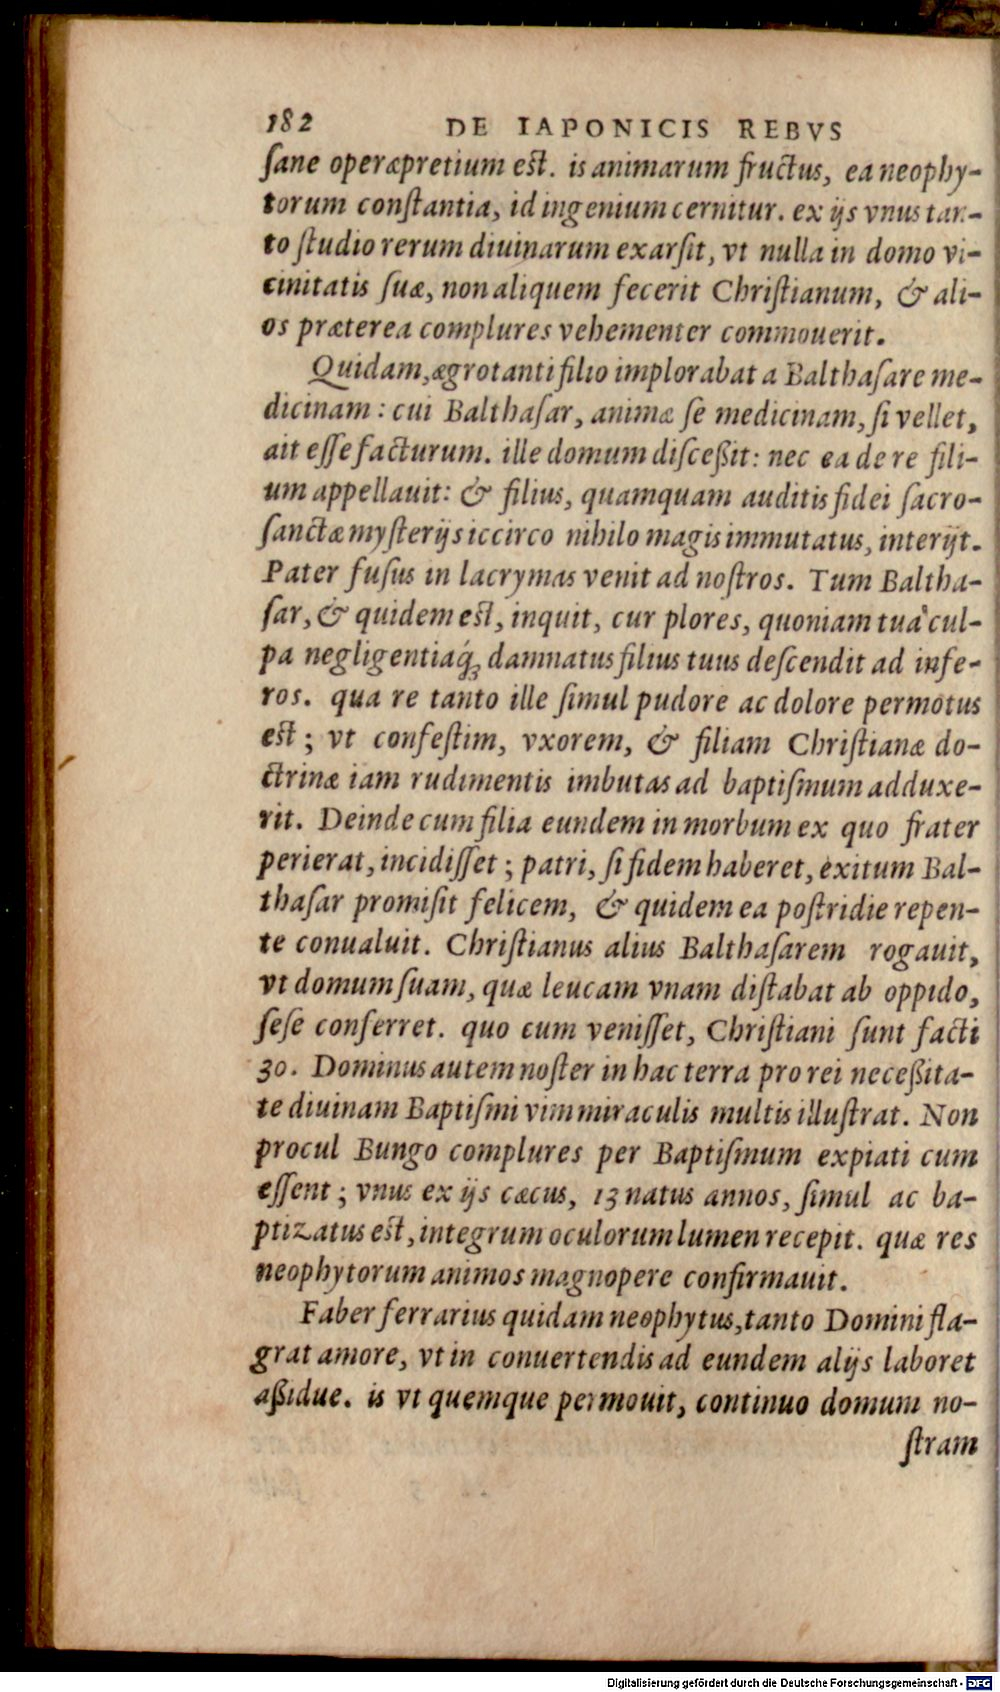 182 DE IAPONICIS REBVS
ſane operæpretium est. is animarum fructus, ea neophy-
torum conſtantia, id ingenium cernitur. ex ijs vnus tan-
to ſtudio rerum diuinarum exarſit, vt nulla in domo vi-
cinitatis ſuæ, non aliquem fecerit Chriſtianum, & ali-
os præterea complures vehementer commouerit.
Quidam, ægrotanti filio implorabat a Balthaſare me-
dicinam: cui Balthaſar, animæ ſe medicinam, ſi vellet,
ait eſſe facturum. ille domum diſceßit: nec ea de re fili-
um appellauit: & filius, quamquam auditis fidei ſacro-
ſanctæ myſterijs iccirco nihilo magis immutatus, interijt.
Pater fuſus in lacrymas venit ad noſtros. Tum Baltha-
ſar, & quidem est, inquit, cur plores, quoniam tuà cul-
pa negligentiaq́ꝫ damnatus filius tuus deſcendit ad infe-
ros. qua re tanto ille ſimul pudore ac dolore permotus
est; vt confeſtim, vxorem, & filiam Chriſtianæ do-
ctrinæ iam rudimentis imbutas ad baptiſmum adduxe-
rit. Deinde cum filia eundem in morbum ex quo frater
perierat, incidiſſet; patri, ſi fidem haberet, exitum Bal-
thaſar promiſit felicem, & quidem ea poſtridie repen-
te conualuit. Chriſtianus alius Balthaſarem rogauit,
vt domum ſuam, quæ leucam vnam diſtabat ab oppido,
ſeſe conferret. quo cum veniſſet, Chriſtiani ſunt facti
30. Dominus autem noſter in hac terra pro rei neceßita-
te diuinam Baptiſmi vim miraculis multis illuſtrat. Non
procul Bungo complures per Baptiſmum expiati cum
eſſent; vnus ex ijs cæcus, 13 natus annos, ſimul ac ba-
ptizatus est, integrum oculorum lumen recepit. quæ res
neophytorum animos magnopere confirmauit.
Faber ferrarius quidam neophytus, tanto Domini fla-
grat amore, vt in conuertendis ad eundem alijs laboret
aßidue. is vt quemque permouit, continuo domum no-
ſtram
Digitalisierung gefördert durch die Deutsche Forschungsgemeinschaft - DFG